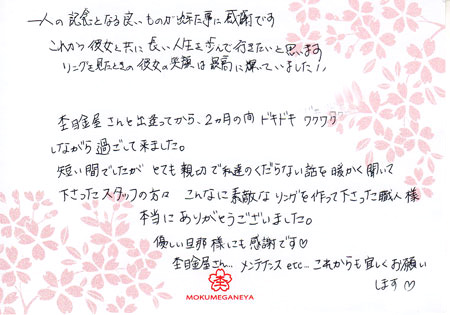 一人の記念となる良いものが出来た事に感謝です
これから彼女と共に長い人生を歩んで行きたいと思います
リングを見たときの彼女の笑顔は最高に輝いていました!!
杢目金屋さんと出逢ってから、2ヵ月の間 ドキドキ ワクワク
しながら過ごして来ました。
短い間でしたが とても親切で私達のくだらない話を暖かく聞いて
下さったスタッフの方々 こんなに素敵なリングを作って下さった職人様
本当にありがとうございました。
優しい旦那様にも感謝です♡
杢目金屋さん… メンテナンス etc… これからも宜しくお願い
します♡
MOKUMEGANEYA